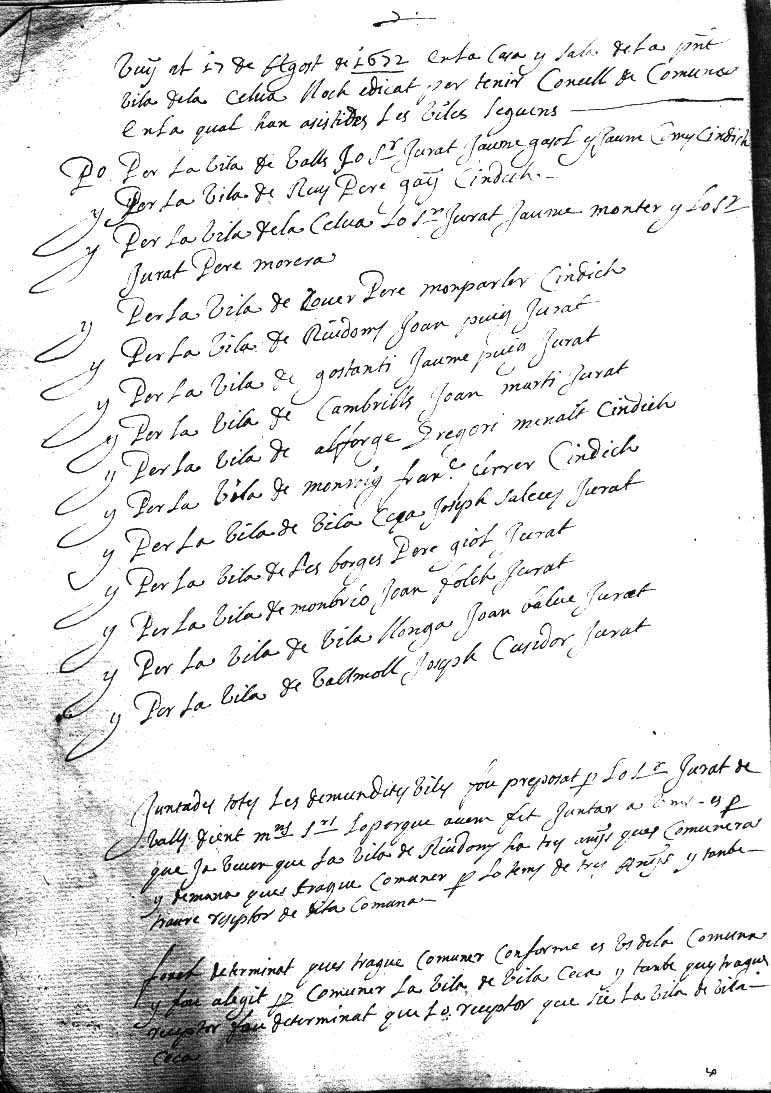 Vuy als 17 de Agost de 1672 en la Casa y sala de la pnt
vila de la Celva lloch edicat per tenir Concell de Comuna
en la qual han asistides les viles seguens
Po Per La vila de valls Lo Sr Jurat Jaume gasol y Jaume Comy Cindich
y Per La vila de Reus Pere gay Cindich
y Per La vila de la Celva Lo Sr Jurat Jaume monter y Lo Sr
Jurat Pere morera
y Per La vila de lover Pere monparler Cindich
y Per La vila de Riudoms Joan puig Jurat
y Per La vila de gostanti Jaume puig Jurat
y Per La vila de Cambrills Joan marti Jurat
y Per La vila de alforge Gregori menalt Cindich
y Per La vila de monroig franc. ferrer Cindich
y Per La vila de vila Ceca Joseph saleus Jurat
y Per La vila de Les borges Pere giol Jurat
y Per La vila de monbrio Joan folch Jurat
y Per La vila de vila llonga Joan balue Jurat
y Per La vila de vallmoll Joseph Casidor Jurat
Juntades totes Les demundites viles fou preposat p Lo Sr Jurat de
valls dient mns Srs Lo perque avem fet Juntar a vms es p
que Ja veuen que La vila de Riudoms ha tres anys ques Comunera
y demana ques trague Comuner p Lo tems de tres Anys y tanbe
traure reseptor de dita Comuna
fonch determinat ques trague Comuner Conforme es us de la Comuna
y fou alegit pr Comuner La vila de vila Ceca y tanbe ques trague
receptor fou determinat que Lo receptor que sie La vila de vila
Ceca